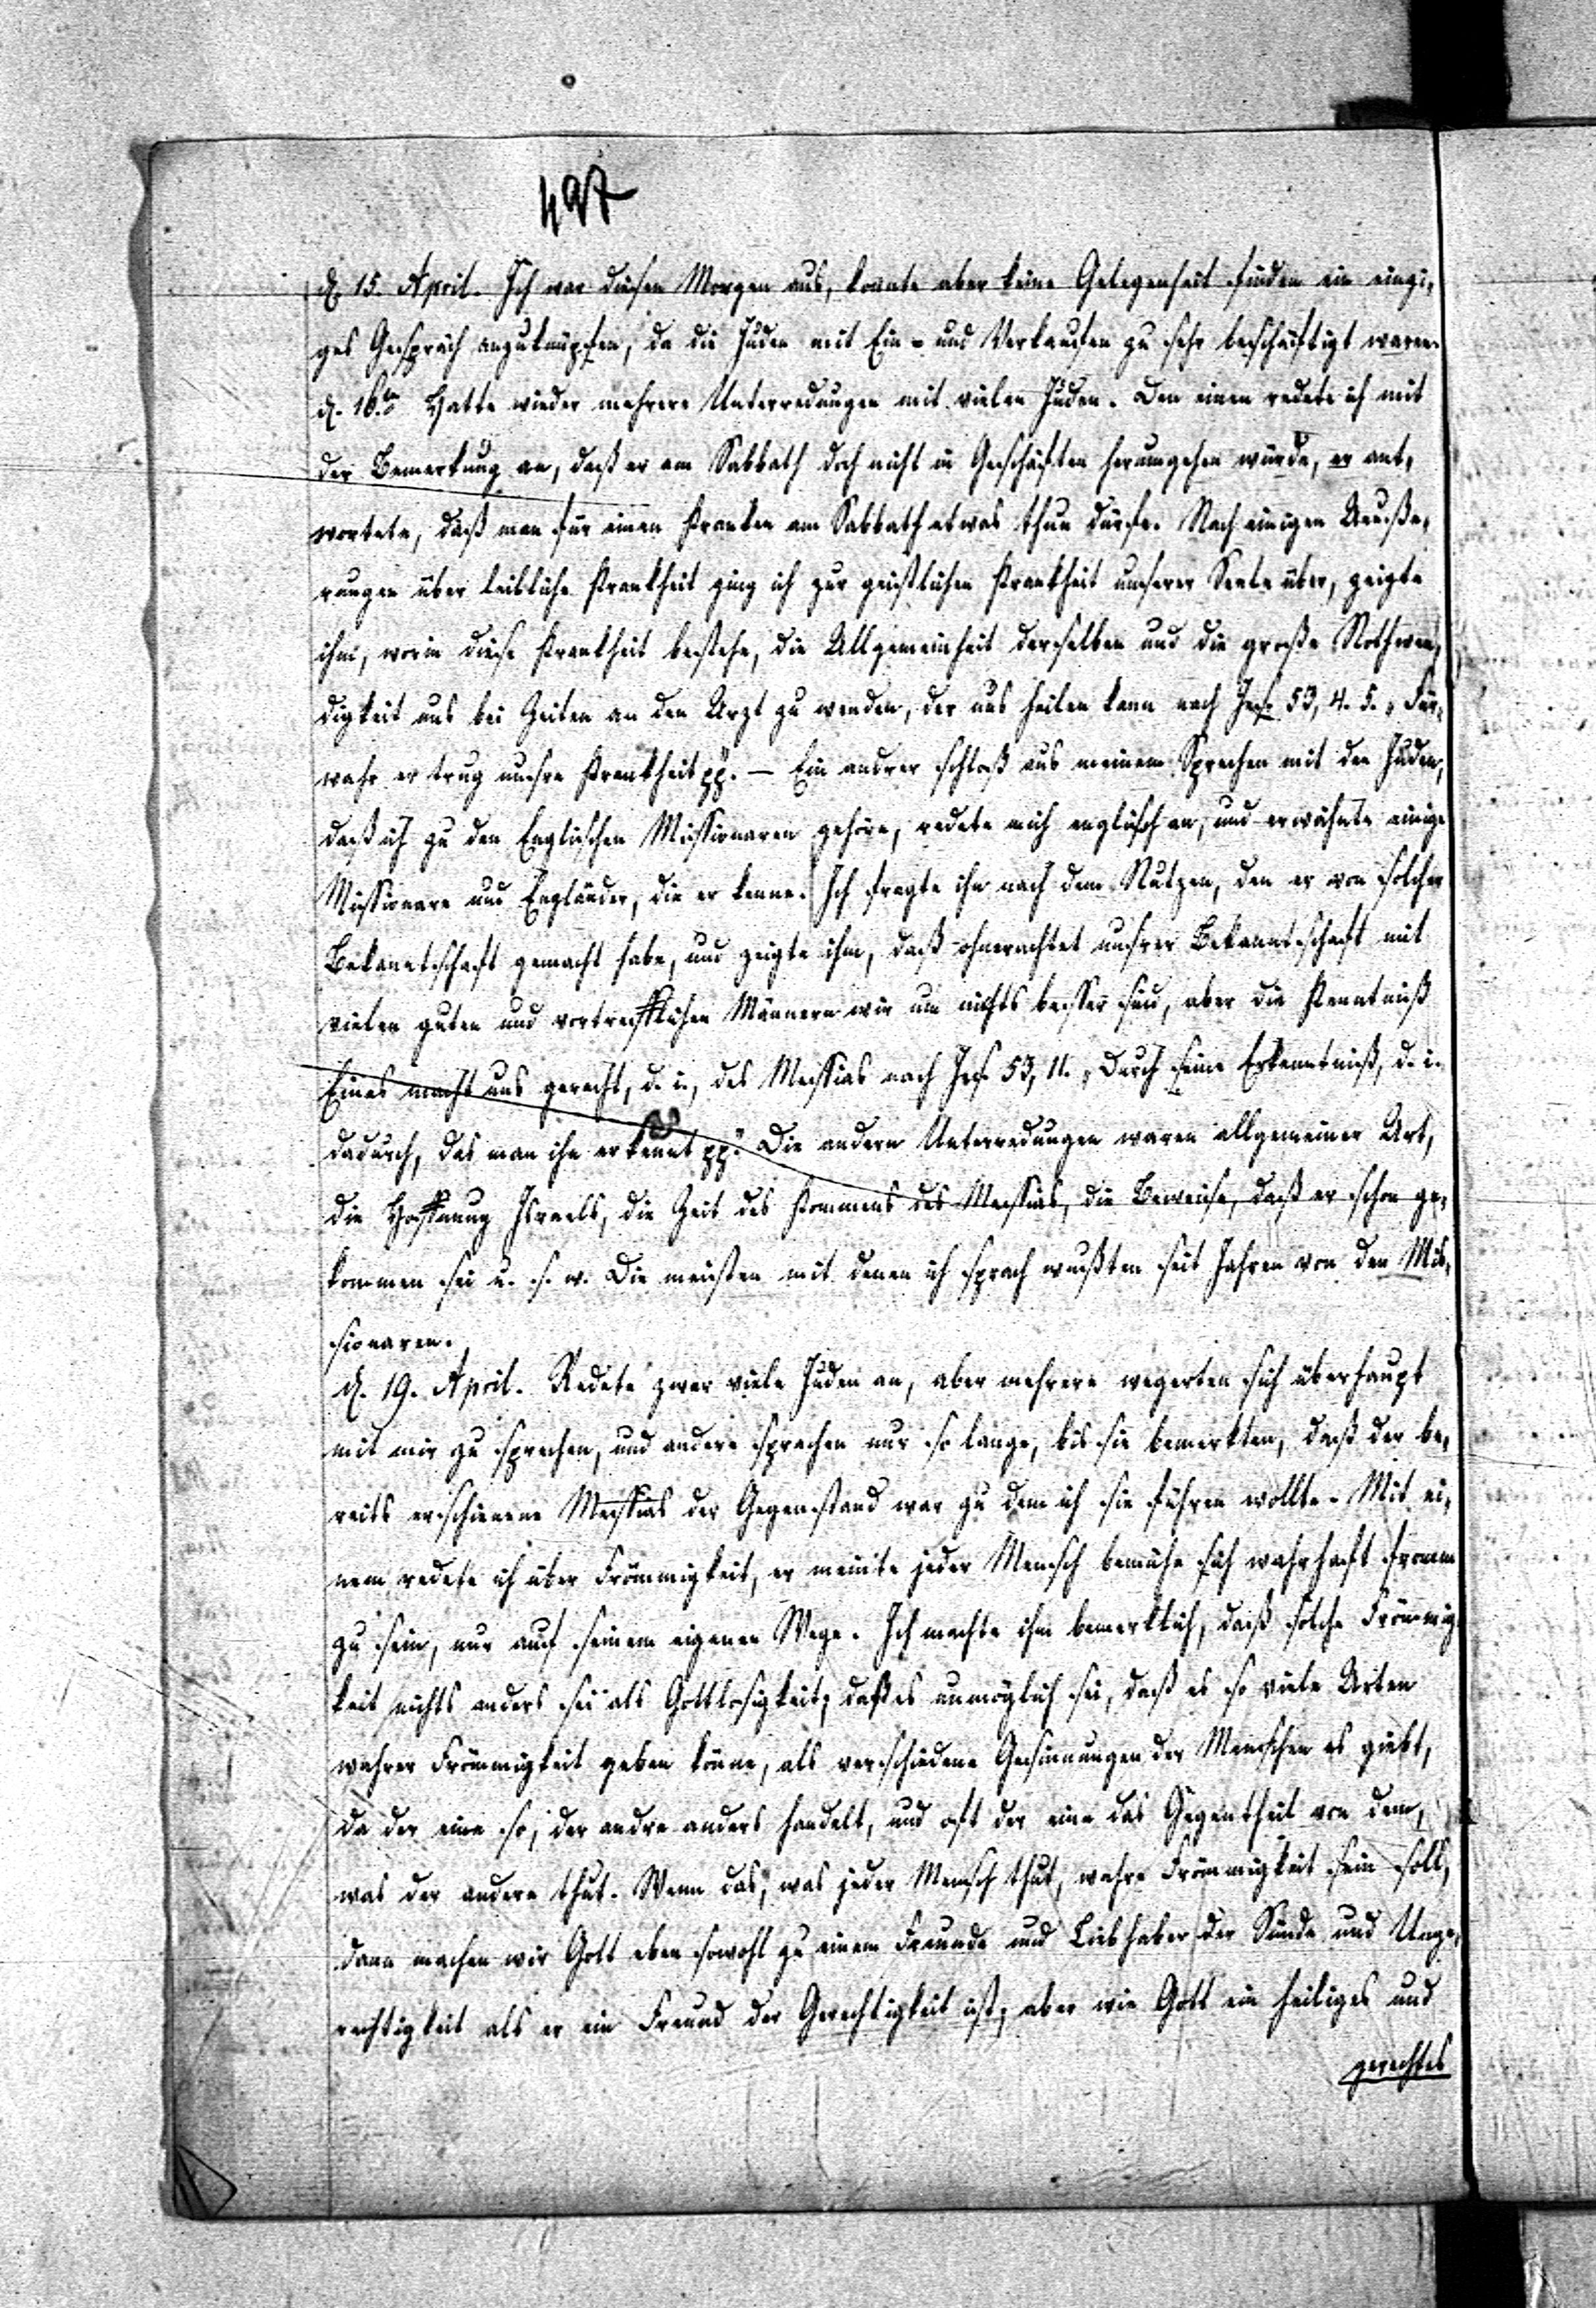 497
d. 15. April. Ich war diesen Morgen aus, konnte aber keine Gelegenheit finden ein einzi-
ges Gespräch anzuknüpfen, da die Juden mit Ein- und Verkaufen zu sehr beschäftigt waren.
d. 16ten Hatte wieder mehrere Unterredungen mit vielen Juden. Den einen redete ich mit
der Bemerkung an, daß er am Sabbath doch nicht in Geschäften herumgehen würde, er ant-
wortete, daß man für einen Kranken am Sabbath etwas thun dürfe. Nach einigen Aeuße-
rungen über leibliche Krankheit ging ich zur geistlichen Krankheit unserer Seele über, zeigte
ihm, worin diese Krankheit bestehe, die Allgemeinheit derselben und die große Nothwen-
digkeit uns bei Zeiten an den Arzt zu wenden, der uns heilen kann nach Jes. 53, 4. 5. „Für-
wahr er trug unsre Krankheit pp." — Ein andrer schloß aus meinem Sprechen mit den Juden,
daß ich zu den Englischen Missionaren gehöre, redete mich englisch an, und erwähnte einige
Missionare und Engländer, die er kenne. Ich fragte ihn nach dem Nutzen, den er von solcher
Bekanntschaft gemacht habe, und zeigte ihm, daß ohnerachtet unsrer Bekanntschaft mit
vielen guten und vortrefflichen Männern wir um nichts besser sind, aber die Kenntniß
Eines macht uns gerecht, d. i., des Messias nach Jes. 53, 11. „Durch seine Erkenntniß, d. i.
dadurch, das man ihn erkennt pp." Die andern Unterredungen waren allgemeiner Art,
die Hoffnung Israels, die Zeit des Kommens des Messias, die Beweise, daß er schon ge-
kommen sei u. s. w. Die meisten mit denen ich sprach wußten seit Jahren von den Mis-
sionaren.
d. 19. April. Redete zwar viele Juden an, aber mehrere wegerten sich überhaupt
mit mir zu sprechen, und andere sprachen nur so lange, bis sie bemerkten, daß der be-
reits erschienene Messias der Gegenstand war zu dem ich sie führen wollte. Mit ei-
nem redete ich über Frömmigkeit, er meinte jeder Mensch bemühe sich wahrhaft fromm
zu sein, nur auf seinem eigenen Wege. Ich machte ihm bemerklich, daß solche Frömmig-
keit nichts anders sei als Gottlosigkeit, daß es unmöglich sei, daß es so viele Arten
wahrer Frömmigkeit geben könne, als verschiedene Gesinnungen der Menschen es giebt,
da der eine so, der andre anders handelt, und oft der eine das Gegentheil von dem,
was der andere thut. Wenn das, was jeder Mensch thut, wahre Frömmigkeit sein soll,
dann machen wir Gott eben sowohl zu einem Freunde und Liebhaber der Sünde und Unge-
rechtigkeit als er ein Freund der Gerechtigkeit ist, aber wie Gott ein heiliges und
gerechtes